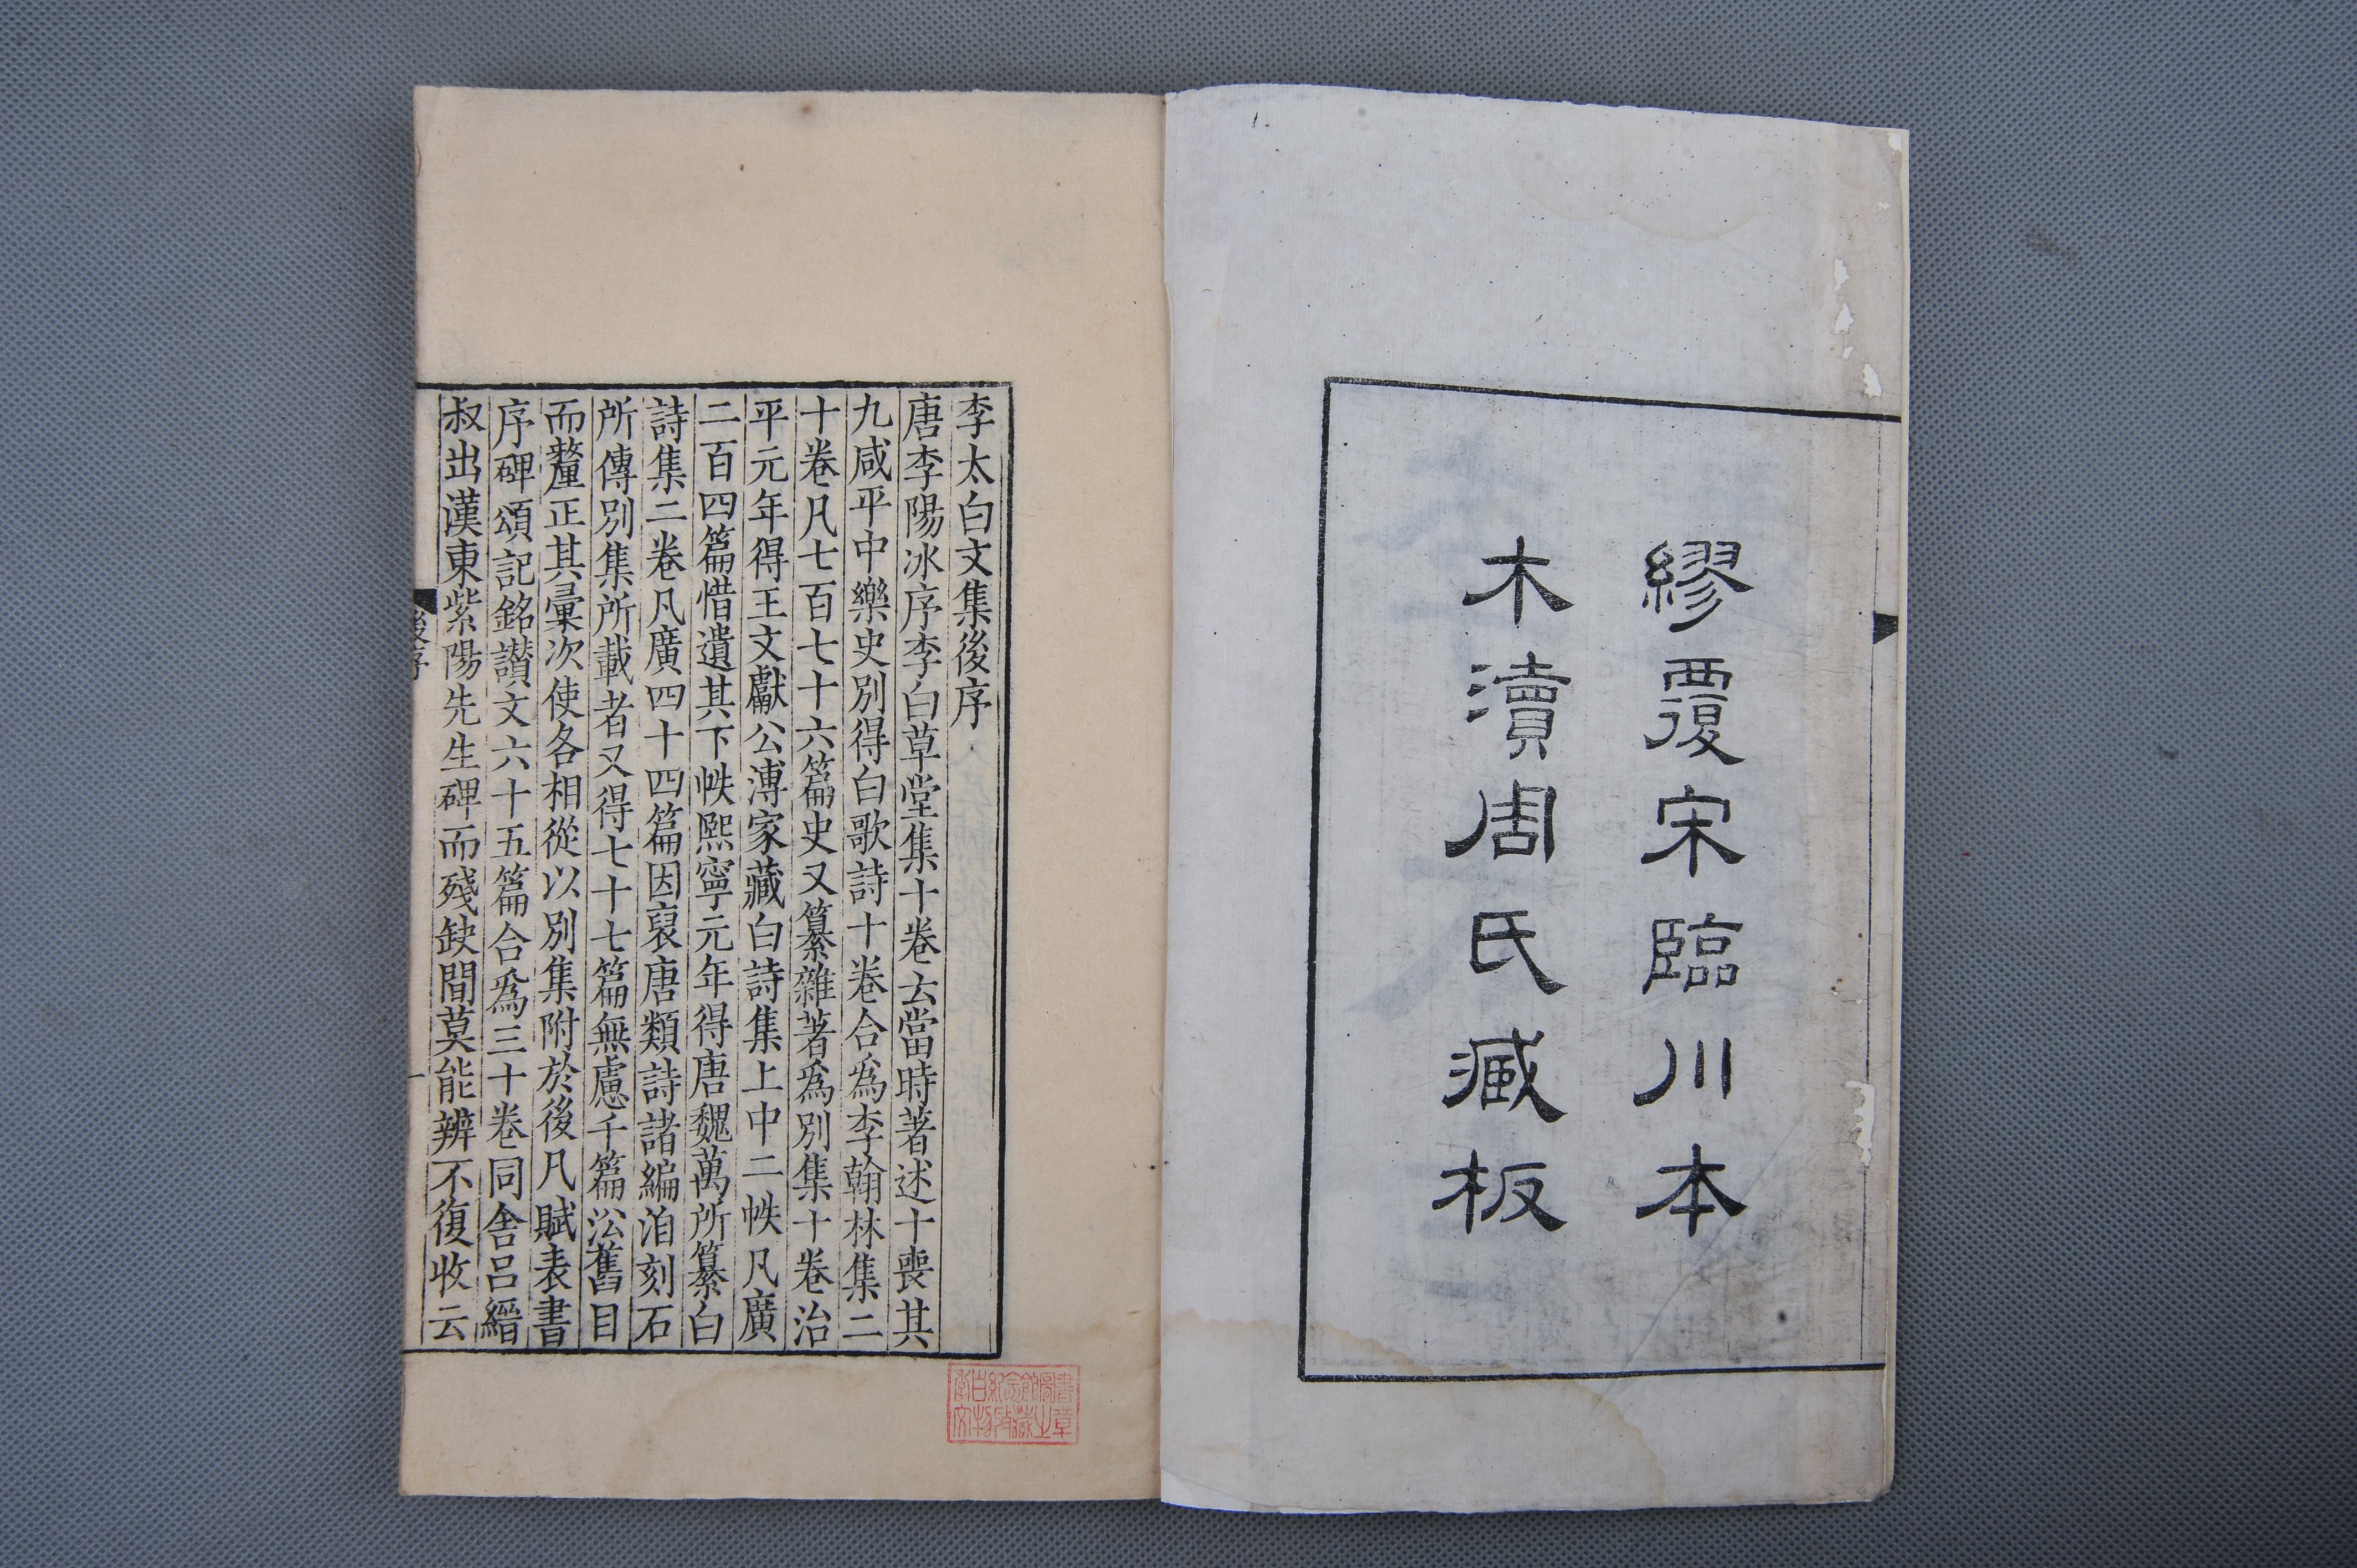 繆覆宋臨川本
木瀆周氏臧板
李太白文集後序
唐李陽冰序李白草堂集十卷云當時著述十喪其
九咸平中樂史別得白歌詩十卷合爲李翰林集二
十卷凡七百七十六篇史又纂雜著爲別集十卷治
平元年得王文獻公溥家藏白詩集上中二帙凡廣
二百四篇惜遺其下帙熙寧元年得唐魏萬所纂白
詩集二卷凡廣四十四篇因裒唐類詩諸編洎刻石
所傳別集所載者又得七十七篇無慮千篇㳂舊目
而釐正其彙次使各相從以別集附於後凡賦表書
序碑頌記銘讃文六十五篇合爲三十卷同舍呂縉
叔出漢東紫陽先生碑而殘缺間莫能辨不復收云
後序
一
李白紀念館圖書
文物收藏之章